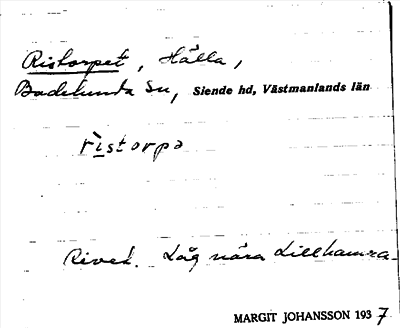 Ristorpet, Hälla,
Badelunda sn, Siende hd, Västmanlands län
ristorpə
Rivet. Låg nära Lillhamra-
MARGIT JOHANSSON 1937